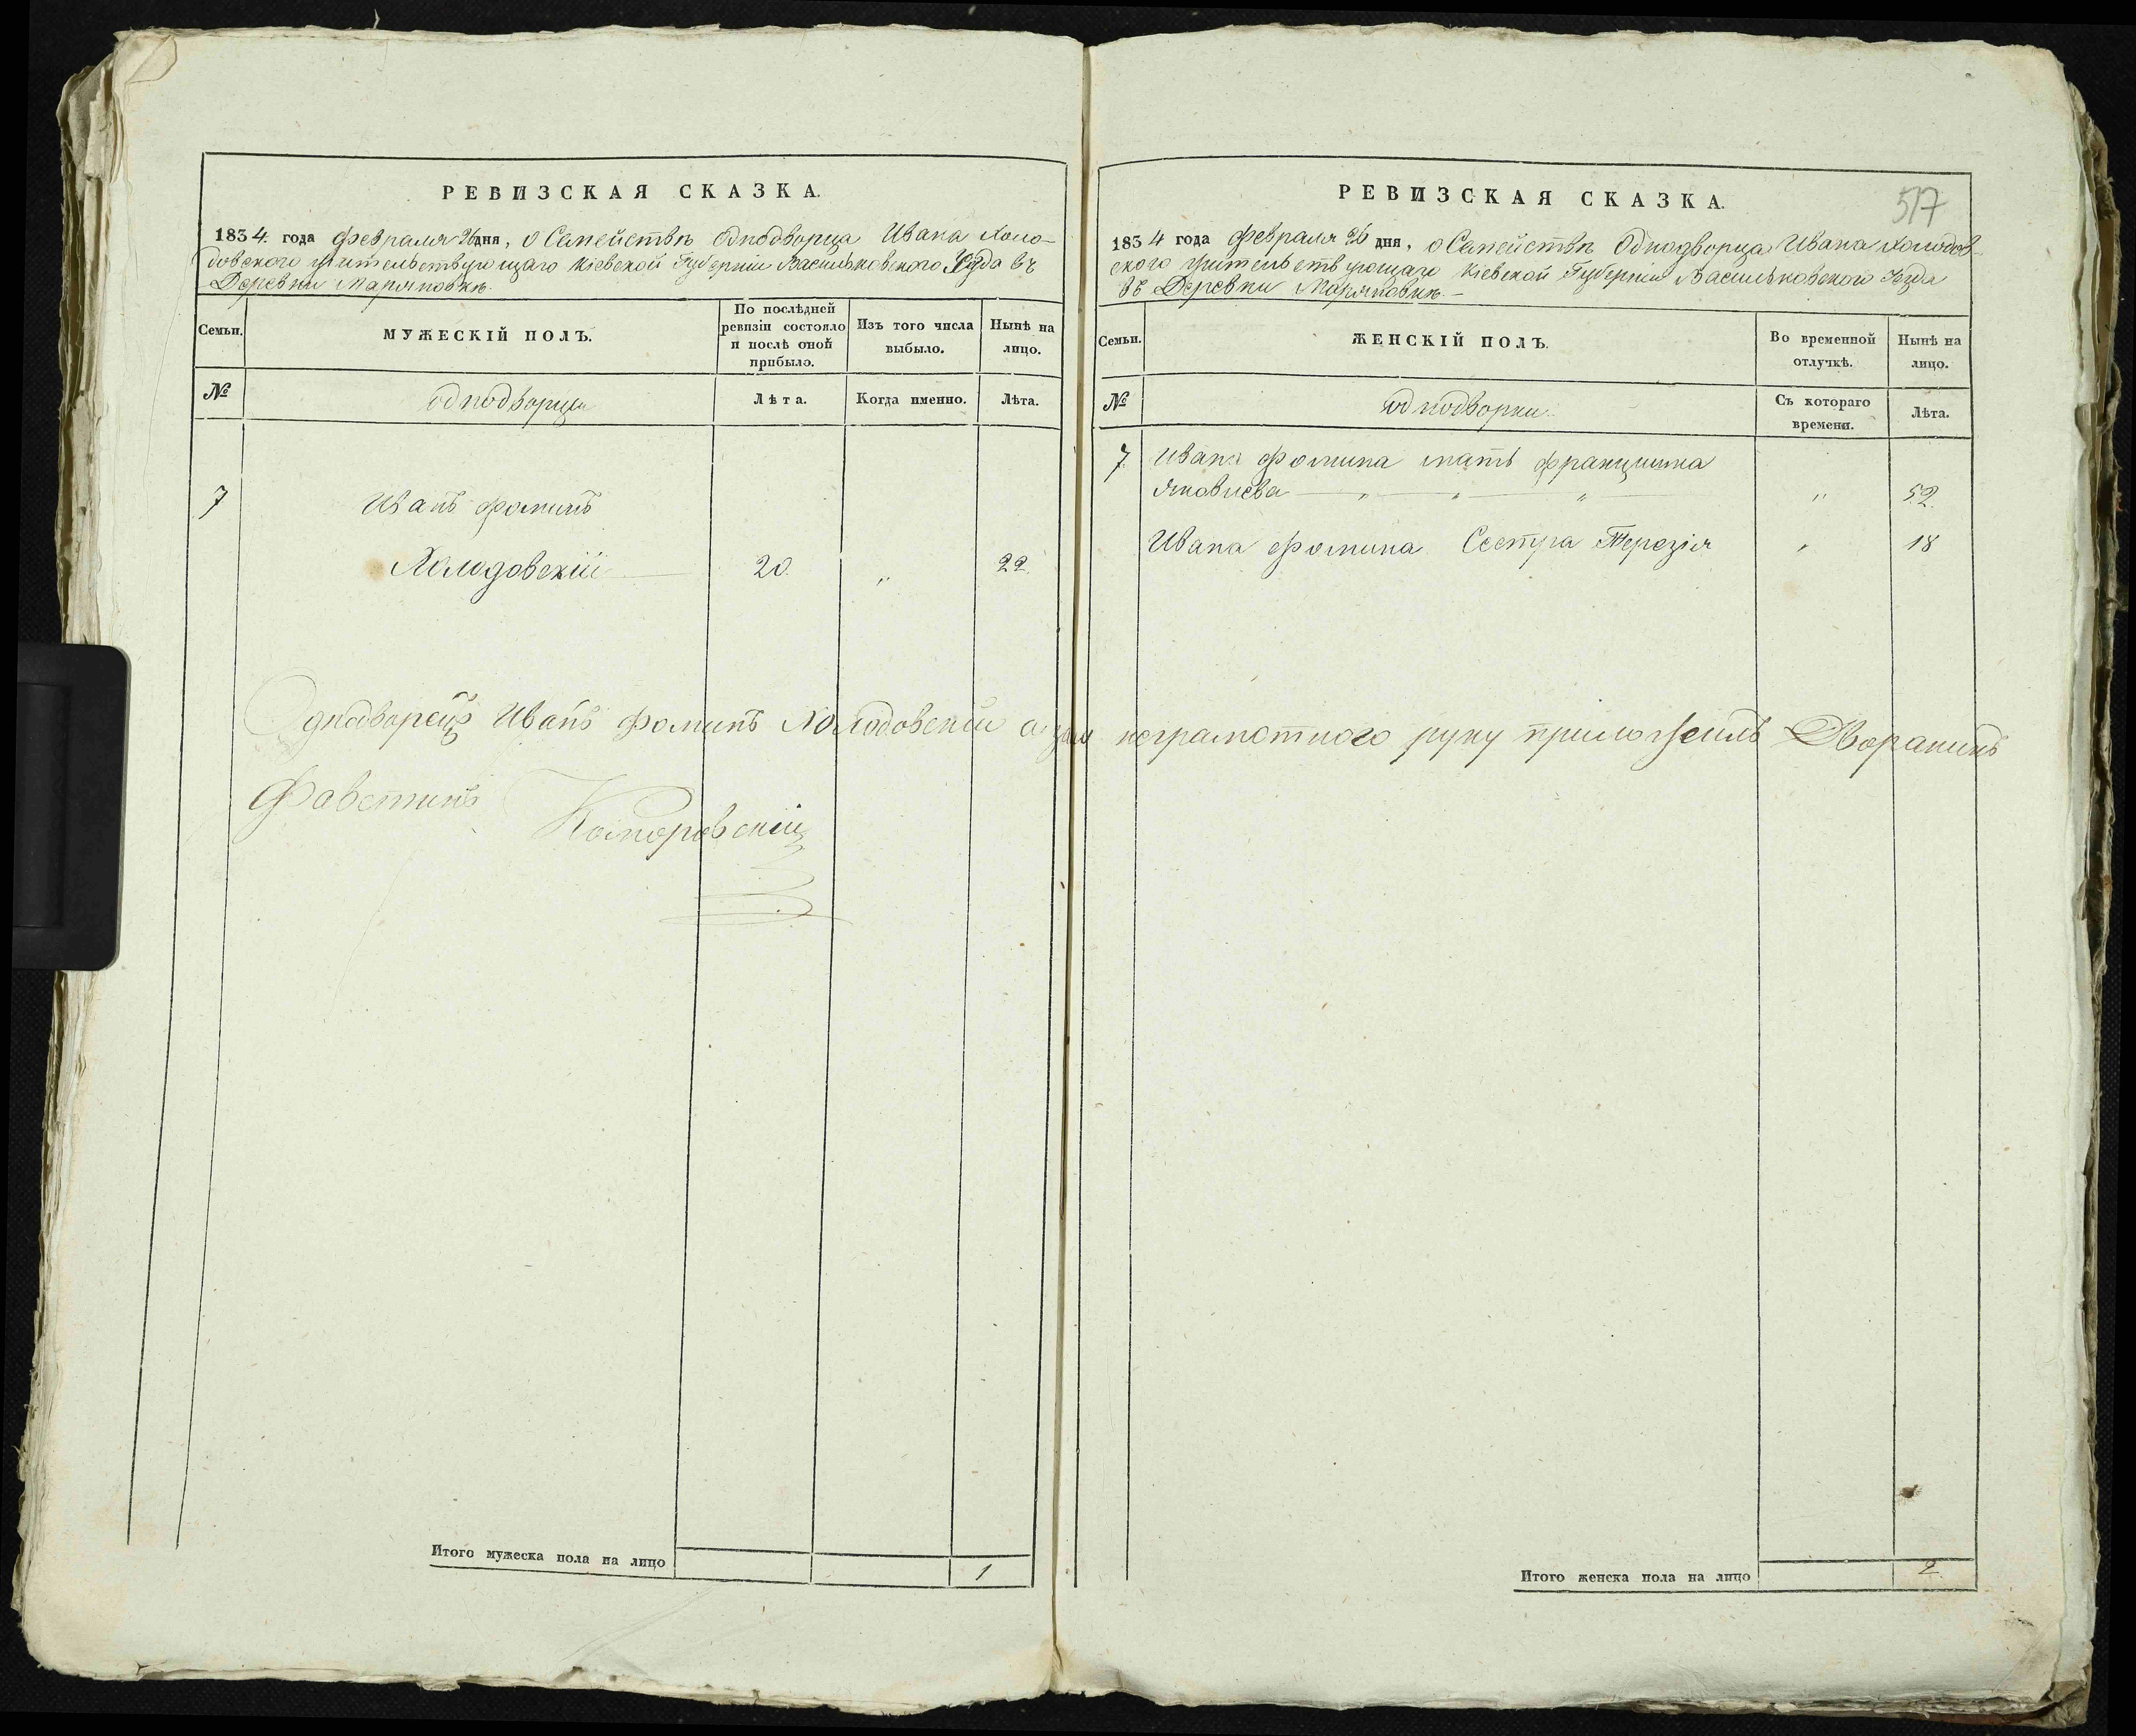 РЕВИЗСКАЯ СКАЗКА.
1834. года февраля 26 дня, о Семействѣ Однодворца Ивана Холо-
довского жительствующаго Кіевской Губерніи Васильковского Уѣзда въ
Деревни Маряновкѣ.
Семьи.
МУЖЕСКІЙ ПОЛЪ.
По послѣдней ревизіи состояло и послѣ оной прибыло.
Изъ того числа выбыло.
Нынѣ на лицо.
№
однодворцы
Лѣта.
Когда именно.
Лѣта.
7
Иванъ Фоминъ
Холодовскій — 20. „ 22.
Однадворецъ Иванъ Фоминъ Холодовскій а за него неграмотного руку приложилъ Дворанинъ
Фавстинъ
Коморовскій
Итого мужеска пола на лицо 1
РЕВИЗСКАЯ СКАЗКА.
517
1834 года февраля 26 дня, о Семействѣ Однодворца Ивана Холодов-
ского жительствующаго Кіевской Губерніи Васильковского Уѣзда
въ Деревни Маряновкѣ.—
Семьи.
ЖЕНСКІЙ ПОЛЪ.
Во временной отлучкѣ.
Нынѣ на лицо.
№
однодворки.
Съ котораго времени.
Лѣта.
7. Ивана Фомина мать Францишка
Яковлева — „ — „ — „ „ 52.
Ивана Фомина Сестра Терезія „ 18
Итого женска пола на лицо 2.